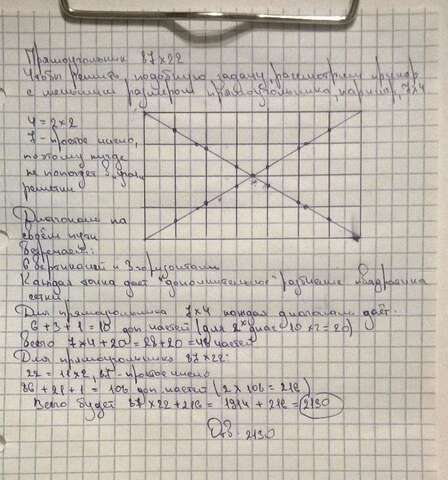 Прямоугольник 87×22
Чтобы решить подобную задачу, рассмотрим пример
с меньшим размером прямоугольника, 7×4
4 = 2×2
7 - простое число,
поэтому нигде
не попадет в
решетки
Диагональ на
своём пути
встречает:
6 вертикалей и 3 горизонтали
Каждая точка дает "дополнительное" разбиение квадратика
сетки
Для прямоугольника 7×4 каждая диагональ даёт:
6+3+1=10 доп частей (для 2х диаг 10×2=20)
Всего 7×4+20=28+20=48 частей
Для прямоугольника 87×22:
22=11×2, 87 - простое число
86+21+1=108 доп. частей (2×108=216)
Всего будет 87×22+216=1914+216=2130
Отв: 2130